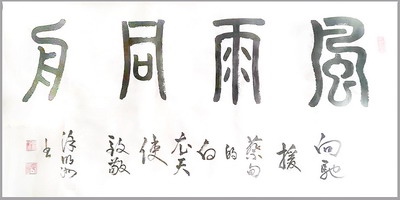 風雨同舟
向馳援蔡甸的白衣天使致敬
徐